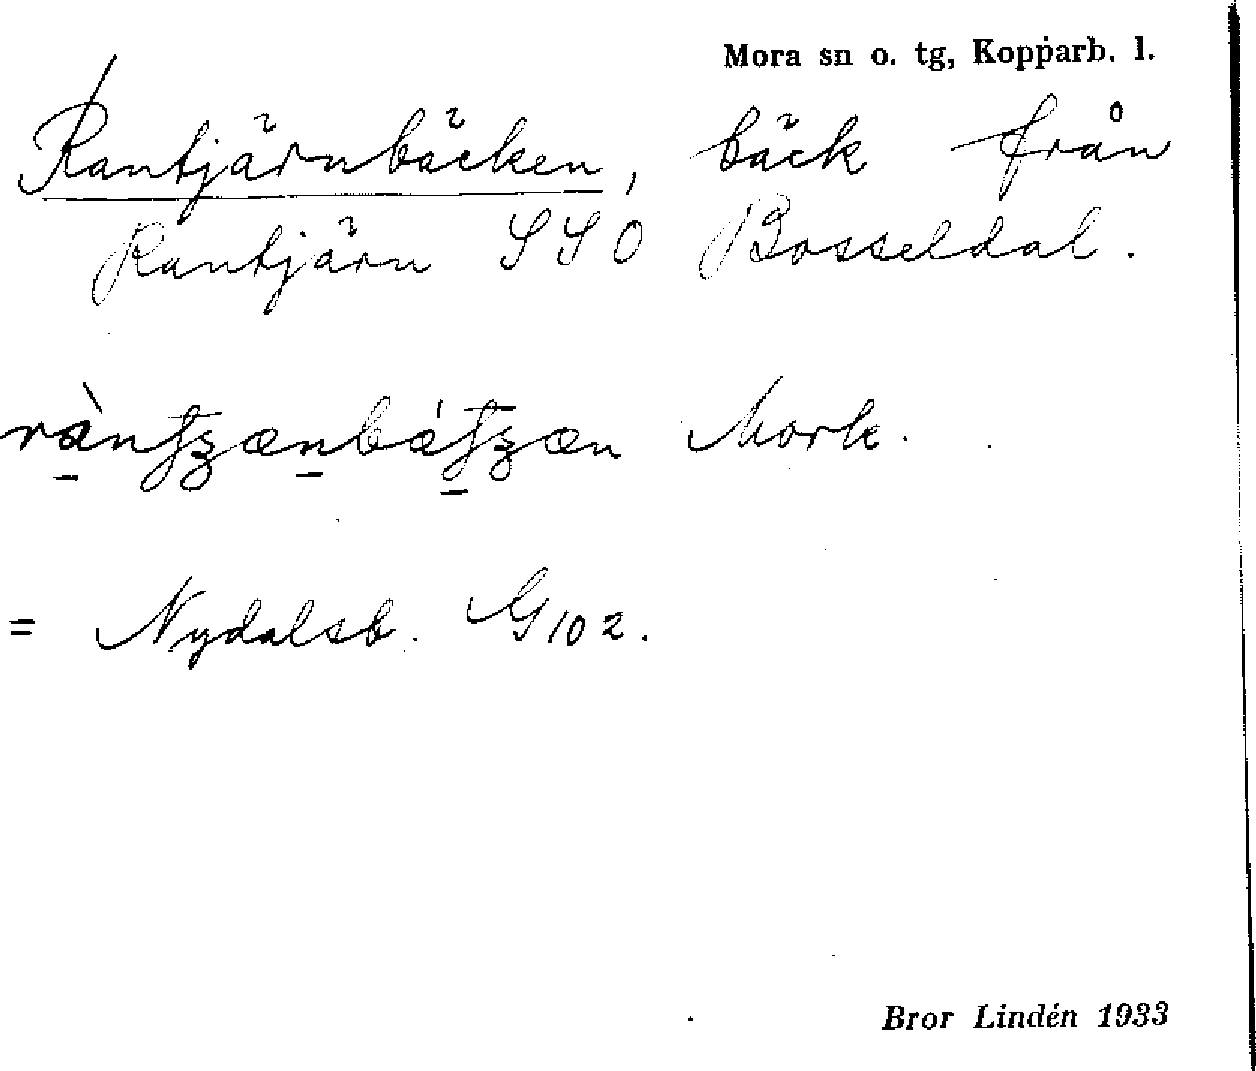 Mora sn o. tg, Kopparb. l.
Rantjärnbäcken, bäck från
Rantjärn SSO Bosseldal.
Mork.
= Nydalsb. G 102.
Bror Lindén 1933